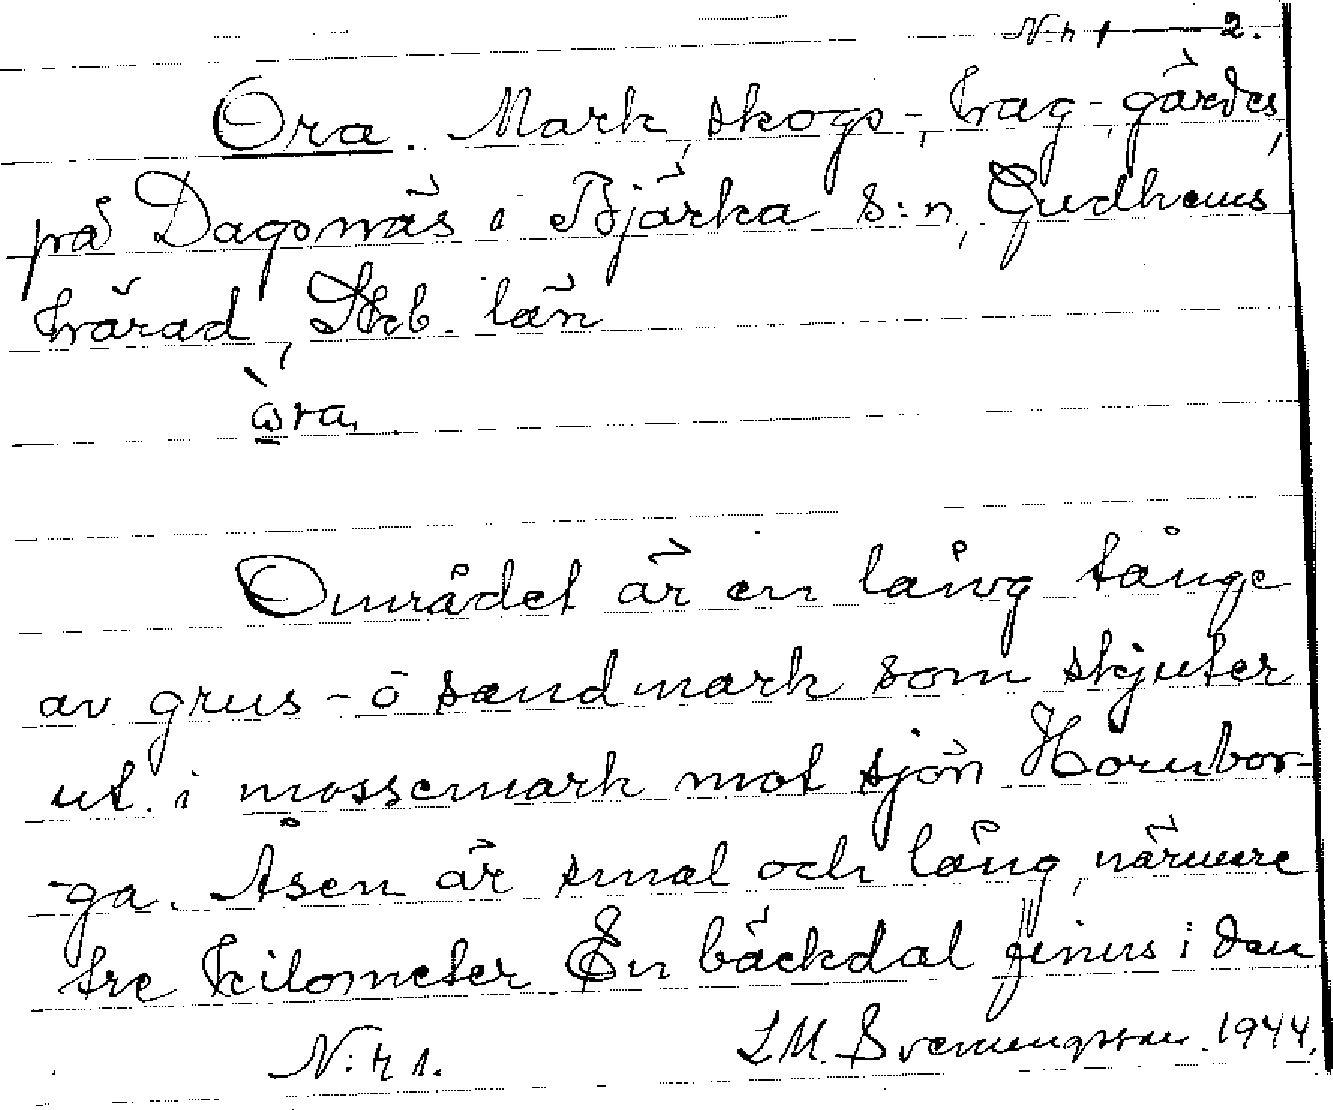 N:r 1 — 2.
Ora. Mark, skogs-, hag-, gärdes,
på Dagsnäs i Bjärka s:n, Gudhems
härad, Skb. län
ὼra.
Området är en lång tånge
av grus- o sandmark som skjuter
ut i mossemark mot sjön Hornbor-
ga. Åsen är smal och lång, närmre
tre kilometer En bäckdal finns i den
N:r 1. L M. Svenungsson. 1944.